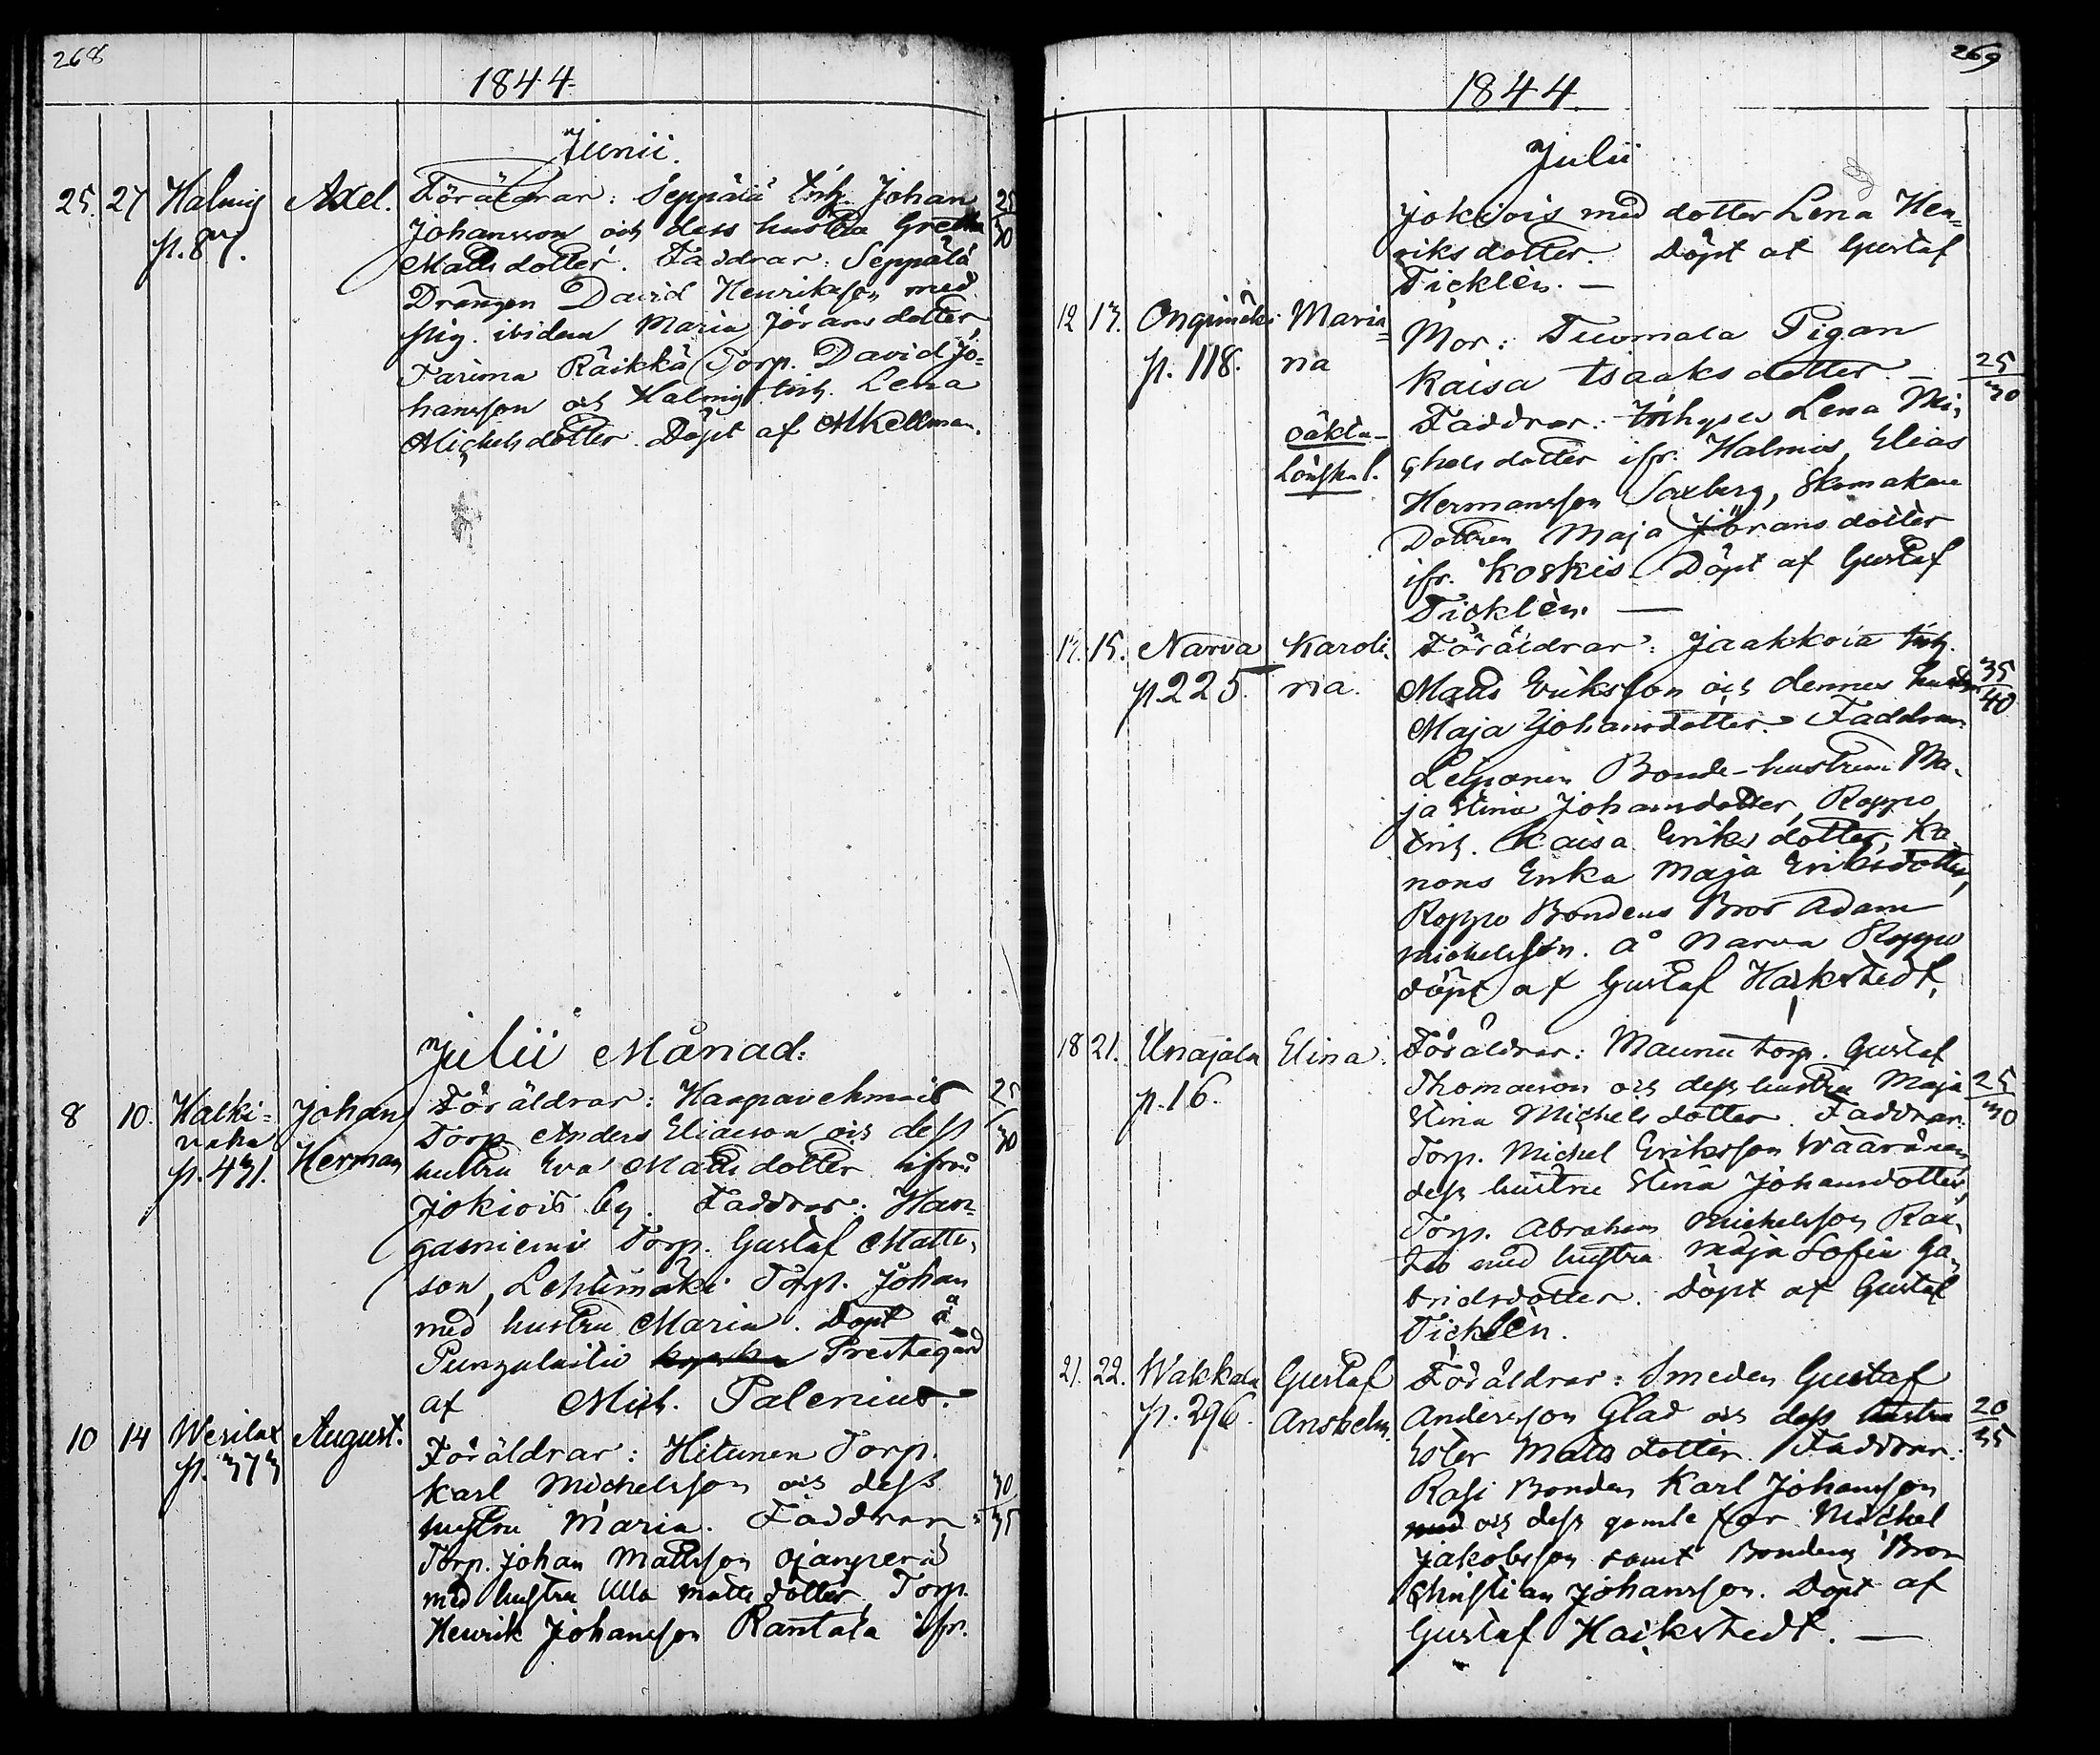 268
1844.
Junii.
25. 27 Halmis Axel. Föräldrar: Seppälä Inh. Johan 25/30
p. 87. Johansson och dess hustru Gretha
Matts dotter. Faddrar: Seppälä
Drängen David Henriksson med
pig. ibidem Maria Jörans dotter,
Farima Räikkä Torp. David Jo-
hansson och Halmis Inh. Lena
Michels dotter. Döpt af Kellman.
Julii Månad:
8 10. Kalki- Johan Föräldrar: Haapaniemis 25/30
naha Herman Torp Anders Eliasson och dess
p. 431. hustru Eva Matts dotter ifrån
Jokiois by. Faddrar: Han-
gasniemis Torp. Gustaf Matts-
son, Lehtimäki Torp. Johan
med hustru Maria. Döpt å
Punzulaitio Prestegård
af Mich. Palenius.
10 14 Wesilax August. Föräldrar: Hitunen Torp.
p. 373 Karl Michelsson och dess 30/35
hustru Maria. Faddrar:
Torp. Johan Mattsson Ojanperä
med hustru Ulla Matts dotter, Torp.
Henrik Johansson Rantala ifr.
269
1844.
Julii
Jokiois med dotter Lena Hen-
riks dotter. Döpt af Gustaf
Ticklèn. —
12 13. Onginöki Maria- Mor: Tuomala Pigan
p. 118. na Kaisa Isaaks dotter. 25/30
Faddrar: Inhyses Lena Mi-
oäkta- chels dotter ifr. Halmis, Elias
Lönskal. Hermansson Saxberg, Skomakare
Dottren Maja Jörans dotter
ifr. Koskis. Döpt af Gustaf
Ticklèn. —
13. 15. Narva Karoli- Föräldrar: Jaakkola Inh.
p 225. na. Matts Eriksson och dennes hustru 35/40
Maja Johansdotter. Faddrar:
Leponen Bonde-hustrun Ma-
ja Stina Johansdotter, Roppo
Inh. Kaisa Eriks dotter, Ka-
nons Enka Maja Eriksdotter,
Roppo Bondens Bror Adam
Michelsson. å Narva Roppo
döpt af Gustaf Haikstedt.
18 21. Unajala Elina. Föräldrar: Maunu torp. Gustaf
p. 16. Thomasson och dess hustru Maja 25/30
Stina Michels dotter. Faddrar:
Torp. Michel Eriksson Wääränen,
dess hustru Stina Johansdotter,
Torp. Abraham Michelsson Rau-
tio med hustru Maja Sofia Ga-
brielsdotter. Döpt af Gustaf
Ticklèn.
21. 22. Wakkala Gustaf Föräldrar: Smeden Gustaf
p. 296. Anshelm. Andersson Glad och dess hustru 20/35
Ester Matts dotter. Faddrar:
Rasi Bonden Karl Johansson
med och dess gamle far Michel
Jakobsson samt Bondens Bror
Christian Johansson. Döpt af
Gustaf Haikstedt. —